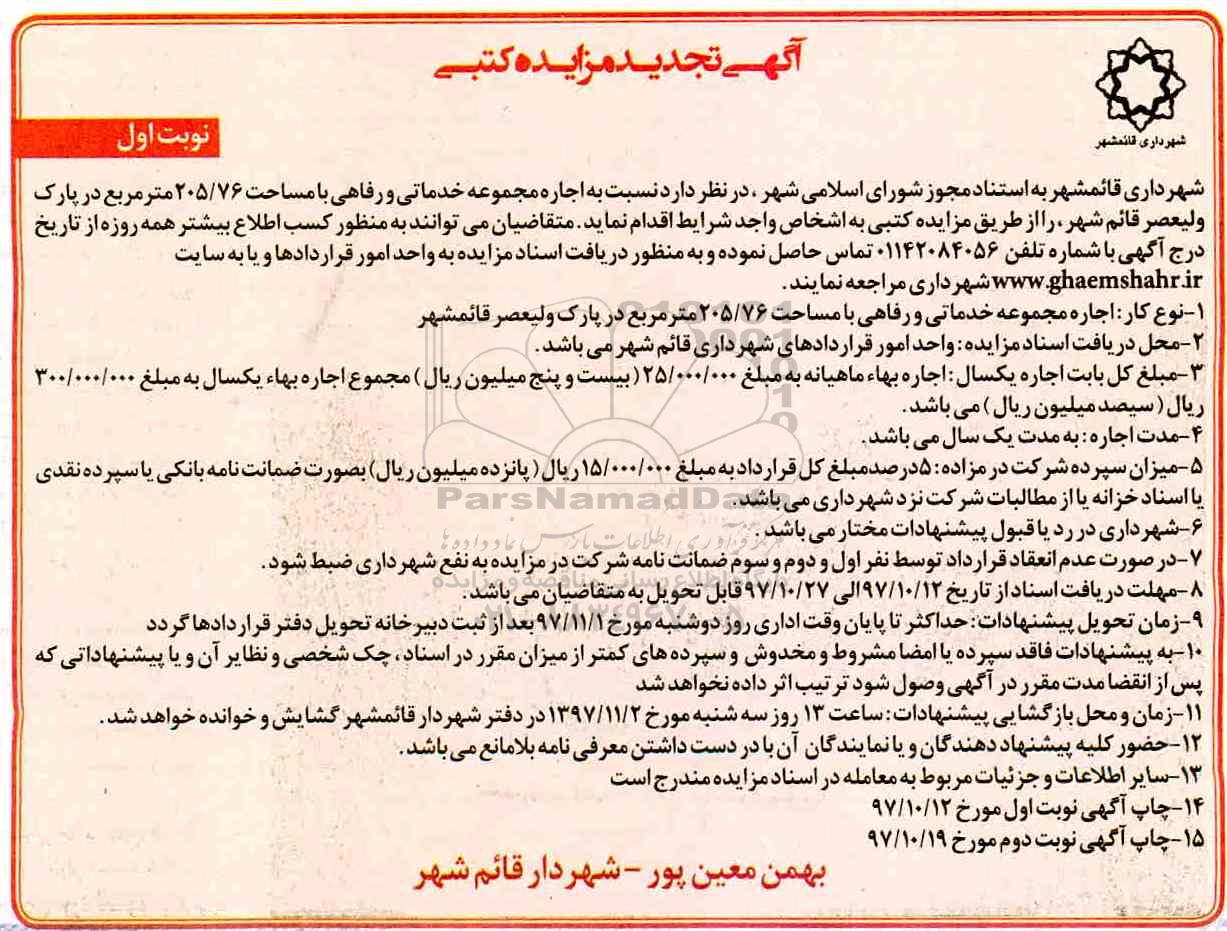 آگهی تجدید مزایده کتبی
شهرداری قائمشهر
نوبت اول
شهرداری قائمشهر به استناد مجوز شورای اسلامی شهر ، در نظر دارد نسبت به اجاره مجموعه خدماتی و رفاهی با مساحت ۲۰۵/۷۶ مترمربع در پارک
ولیعصر قائم شهر ، را از طریق مزایده کتبی به اشخاص واجد شرایط اقدام نماید. متقاضیان می توانند به منظور کسب اطلاع بیشتر همه روزه از تاریخ
درج آگهی با شماره تلفن ۰۱۱۴۲۰۸۴۰۵۶ تماس حاصل نموده و به منظور دریافت اسناد مزایده به واحد امور قراردادها و یا به سایت
www.ghaemshahr.ir شهرداری مراجعه نمایند.
۱-نوع کار: اجاره مجموعه خدماتی و رفاهی با مساحت ۲۰۵/۷۶ مترمربع در پارک ولیعصر قائمشهر
۲-محل دریافت اسناد مزایده: واحد امور قراردادهای شهرداری قائم شهر می باشد.
۳-مبلغ کل بابت اجاره یکسال: اجاره بهاء ماهیانه به مبلغ ۲۵/۰۰۰/۰۰۰ (بیست و پنج میلیون ریال) مجموع اجاره بهاء یکسال به مبلغ ۳۰۰/۰۰۰/۰۰۰
ریال (سیصد میلیون ریال) می باشد.
۴-مدت اجاره: به مدت یک سال می باشد.
۵-میزان سپرده شرکت در مزاده: ۵درصد مبلغ کل قرارداد به مبلغ ۱۵/۰۰۰/۰۰۰ ریال (پانزده میلیون ریال) بصورت ضمانت نامه بانکی یا سپرده نقدی
یا اسناد خزانه یا از مطالبات شرکت نزد شهرداری می باشد.
ParsNamadData
۶-شهرداری در رد یا قبول پیشنهادات مختار می باشد.
۷-در صورت عدم انعقاد قرارداد توسط نفر اول و دوم و سوم ضمانت نامه شرکت در مزایده به نفع شهرداری ضبط شود.
۸-مهلت دریافت اسناد از تاریخ ۹۷/۱۰/۱۲ الی ۹۷/۱۰/۲۷ قابل تحویل به متقاضیان می باشد.
۹-زمان تحویل پیشنهادات: حداکثر تا پایان وقت اداری روز دوشنبه مورخ ۹۷/۱۱/۱ بعد از ثبت دبیرخانه تحویل دفتر قراردادها گردد
۱۰-به پیشنهادات فاقد سپرده یا امضا مشروط و مخدوش و سپرده های کمتر از میزان مقرر در اسناد، چک شخصی و نظایر آن و یا پیشنهاداتی که
پس از انقضا مدت مقرر در آگهی وصول شود ترتیب اثر داده نخواهد شد
۱۱-زمان و محل بازگشایی پیشنهادات: ساعت ۱۳ روز سه شنبه مورخ ۱۳۹۷/۱۱/۲ در دفتر شهردار قائمشهر گشایش و خوانده خواهد شد.
۱۲-حضور کلیه پیشنهاد دهندگان و یا نمایندگان آن با در دست داشتن معرفی نامه بلامانع می باشد.
۱۳-سایر اطلاعات و جزئیات مربوط به معامله در اسناد مزایده مندرج است
۱۴-چاپ آگهی نوبت اول مورخ ۹۷/۱۰/۱۲
۱۵-چاپ آگهی نوبت دوم مورخ ۹۷/۱۰/۱۹
بهمن معین پور - شهردار قائم شهر